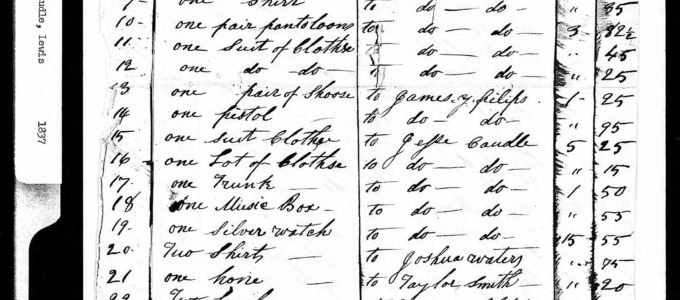 ndle, Lewis
1837
9 - one Shirt to do — do — " 35
10 - one pair pantoloons to do — do — 3 32½
11 one Suit of Clothse to do — do — " 45
12 one do - do - to do — do — " 25
13 one pair of Shoose to James. y. filips. 1 - 25
14 one pistol — to do — do - " 95
15 one Suit Clothse to Jesse Caudle 5 25
16 - one Lot of Clothse to do — do — " 15
17. one Trunk — to do — do - 1 50
18 one Music Box - to do — do - " 55
19. one Silver watch to do — do - 15 55
20. Two Shirts — to Joshua waters " 75
21 one hone — to Taylor Smith - " 20
22 Two